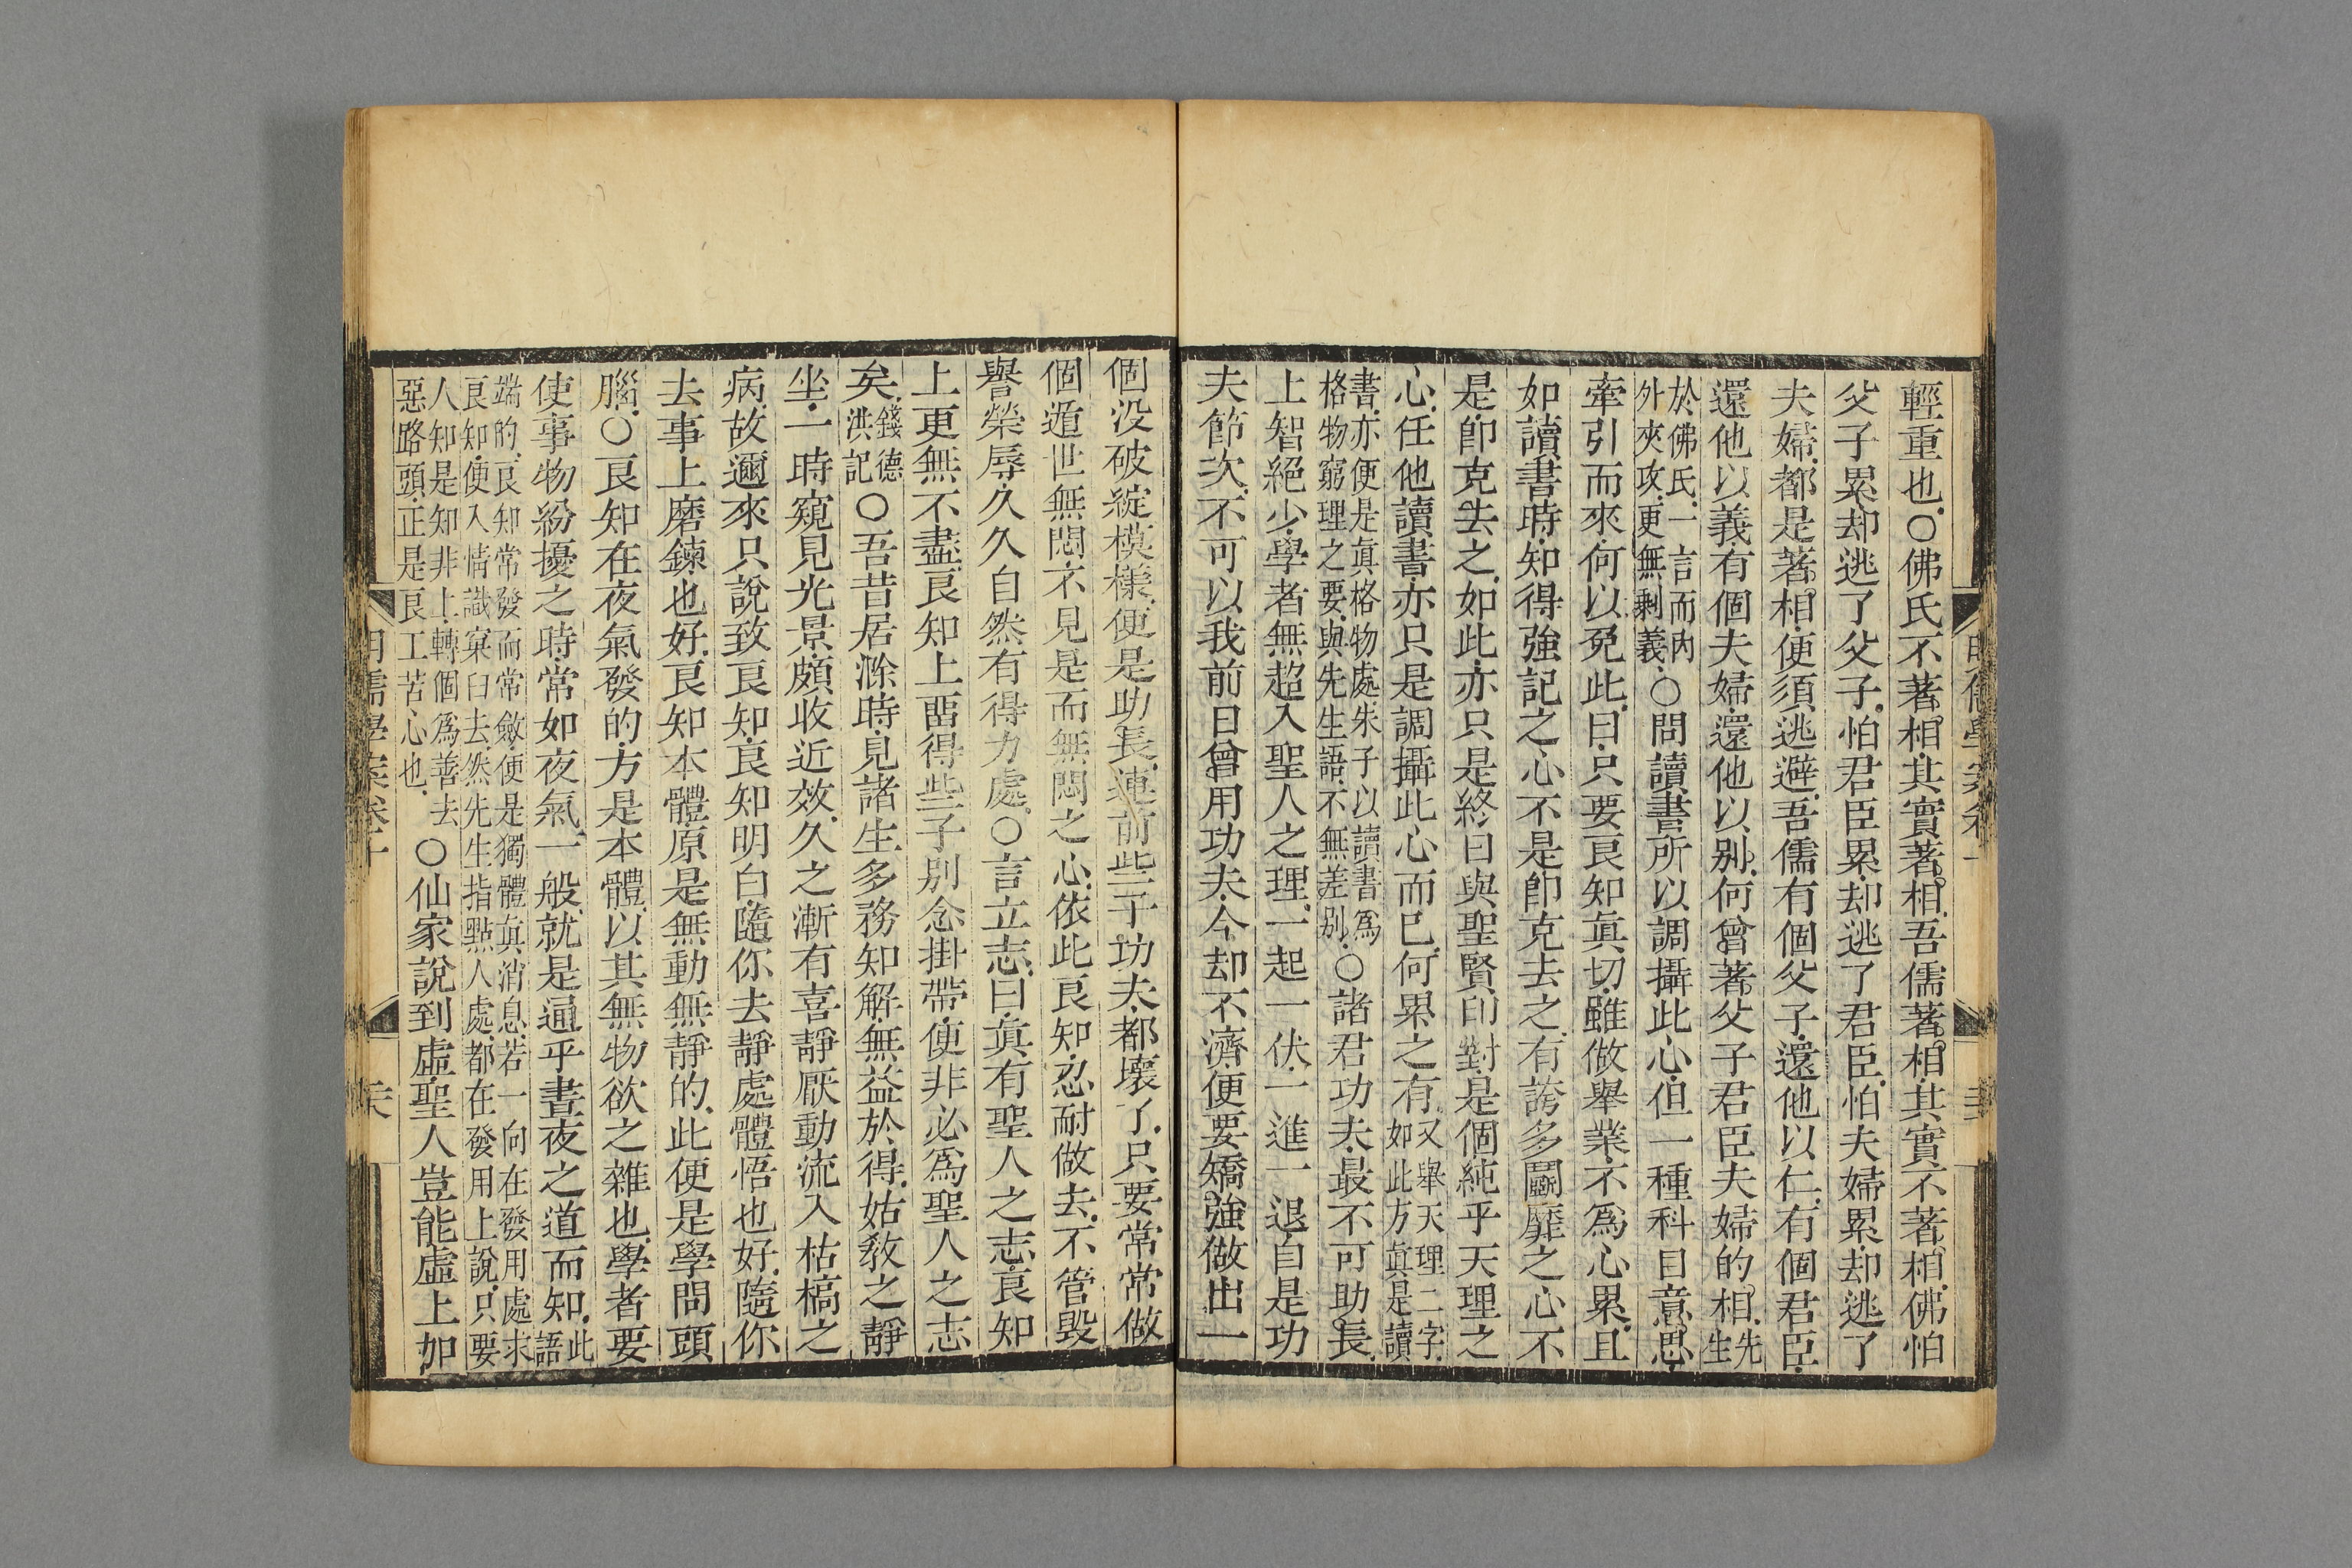 輕重也○佛氏不著相其實著相吾儒著相其實不著相佛怕
父子累却逃了父子怕君臣累却逃了君臣怕夫婦累却逃了
夫婦都是著相便須逃避吾儒有個父子還他以仁有個君臣
還他以義有個夫婦還他以别何曾著父子君臣夫婦的相先生
於佛氏一言而内
外夾攻更無剩義○問讀書所以調攝此心但一種科目意思
牽引而來何以免此曰只要良知眞切雖做舉業不爲心累且
如讀書時知得強記之心不是卽克去之有誇多鬭靡之心不
是卽克去之如此亦只是終日與聖賢印對是個純乎天理之
心任他讀書亦只是調攝此心而已何累之有又舉天理二字
如此方眞是讀
書亦便是眞格物處朱子以讀書爲
格物窮理之要與先生語不無差别○諸君功夫最不可助長
上智絕少學者無超入聖人之理一起一伏一進一退自是功
夫節次不可以我前日曾用功夫今却不濟便要矯強做出一
個没破綻模樣便是助長連前些子功夫都壞了只要常常做
個遁世無悶不見是而無悶之心依此良知忍耐做去不管毀
譽榮辱久久自然有得力處○言立志曰眞有聖人之志良知
上更無不盡良知上畱得些子別念掛帶便非必爲聖人之志
矣錢德
洪記○吾昔居滁時見諸生多務知解無益於得姑敎之靜
坐一時窺見光景頗收近效久之漸有喜靜厭動流入枯槁之
病故邇來只說致良知良知明白隨你去靜處體悟也好隨你
去事上磨鍊也好良知本體原是無動無靜的此便是學問頭
腦○良知在夜氣發的方是本體以其無物欲之雜也學者要
使事物紛擾之時常如夜氣一般就是通乎晝夜之道而知此
語
端的良知常發而常斂便是獨體眞消息若一向在發用處求
良知便入情識窠臼去然先生指點人處都在發用上說只要
人知是知非上轉個爲善去
惡路頭正是良工苦心也○仙家說到虛聖人豈能虛上加